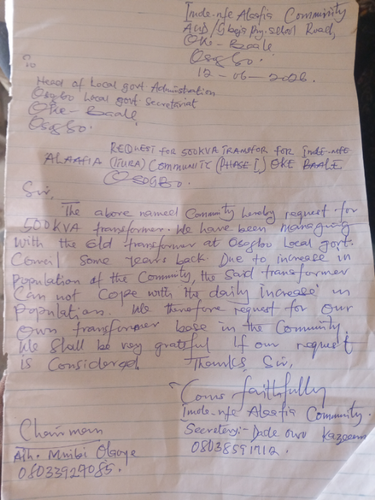 Imole-nfe Alaafia Community
AUD/Gbaja Pry. School Road,
Oke-Baale
Osogbo
12-06-2026.
To
Head of Local govt Administration
Osogbo Local govt Secretariat
Oke-Baale,
Osogbo.
REQUEST FOR 500KVA TRANSFOR FOR IMOLE-NFE
ALAAFIA COMMUNITY (PHASE I) OKE BAALE
OSOGBO.
Sir,
The above named Community hereby request for
500KVA transformer. We have been managing
with the old transformer at Osogbo Local govt.
Council Some years back Due to increase in
population of the Community, the said transformer
Can not Cope with the daily increase in
Population. We therefore request for our
Own transformer base in the Community.
We shall be very grateful if our request
is Considered Thanks Sir,
Yours faithfully
Imole-nfe Alaafia Community.
Chairman Secretary:-
Alh. Munibi 08038591712.
08033929085.